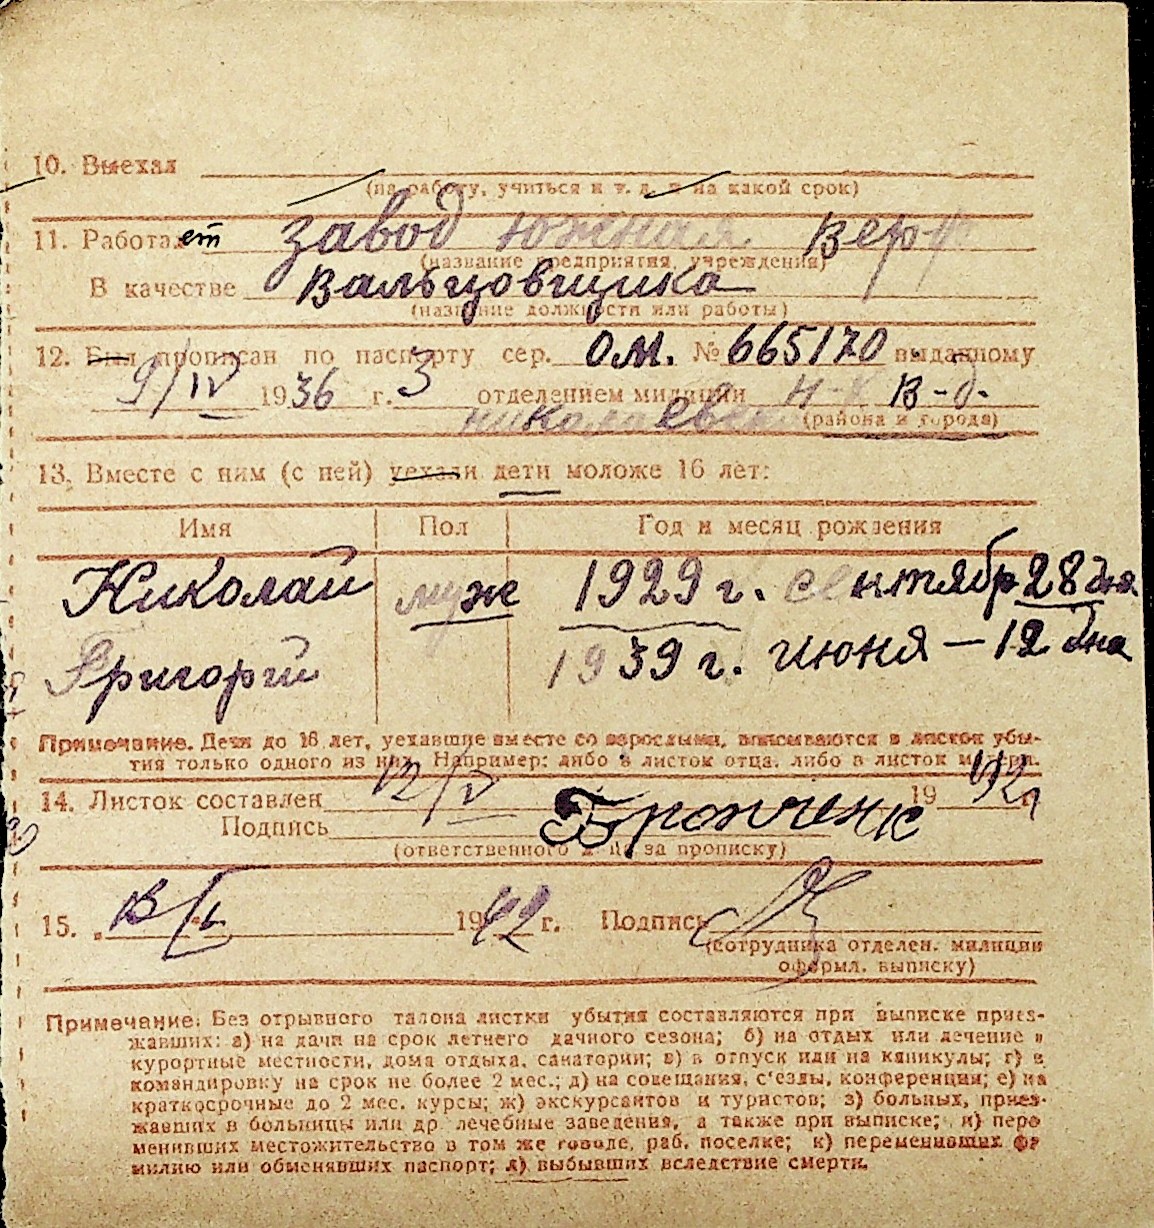 10. Выехал
(на работу, учиться и т. д. и на какой срок)
11. Работает завод Южная Верфь
(название предприятия, учреждения)
В качестве Вальцовщика
(название должности или работы)
12. Был прописан по паспорту сер. ОМ. № 665170 выданному
9/IV 1936 г. 3 отделением милиции Н-К В-д.
николаевск (района и города)
13. Вместе с ним (с ней) уехали дети моложе 16 лет:
Имя Пол Год и месяц рождения
Николай муж 1929 г. сентябр 28 дня
Григорий 1939 г. июня — 12 дня
Примечание. Дети до 16 лет, уехавшие вместе со взрослыми, вписываются в листок убы-
тия только одного из них. Например: либо в листок отца, либо в листок матери.
14. Листок составлен 12/V 1942 г.
Подпись
(ответственного за прописку)
15. 1942 г. Подпись
(сотрудника отделен. милиции
оформл. выписку)
Примечание: Без отрывного талона листки убытия составляются при выписке приез-
жавших: а) на дачи на срок летнего дачного сезона; б) на отдых или лечение в
курортные местности, дома отдыха, санатории; в) в отпуск или на каникулы; г) в
командировку на срок не более 2 мес.; д) на совещания, с'езды, конференции; е) на
краткосрочные до 2 мес. курсы; ж) экскурсантов и туристов; з) больных, приез-
жавших в больницы или др. лечебные заведения, а также при выписке; и) пере
менивших местожительство в том же городе, раб. поселке; к) переменивших фа
милию или обменявших паспорт; л) выбывших вследствие смерти.